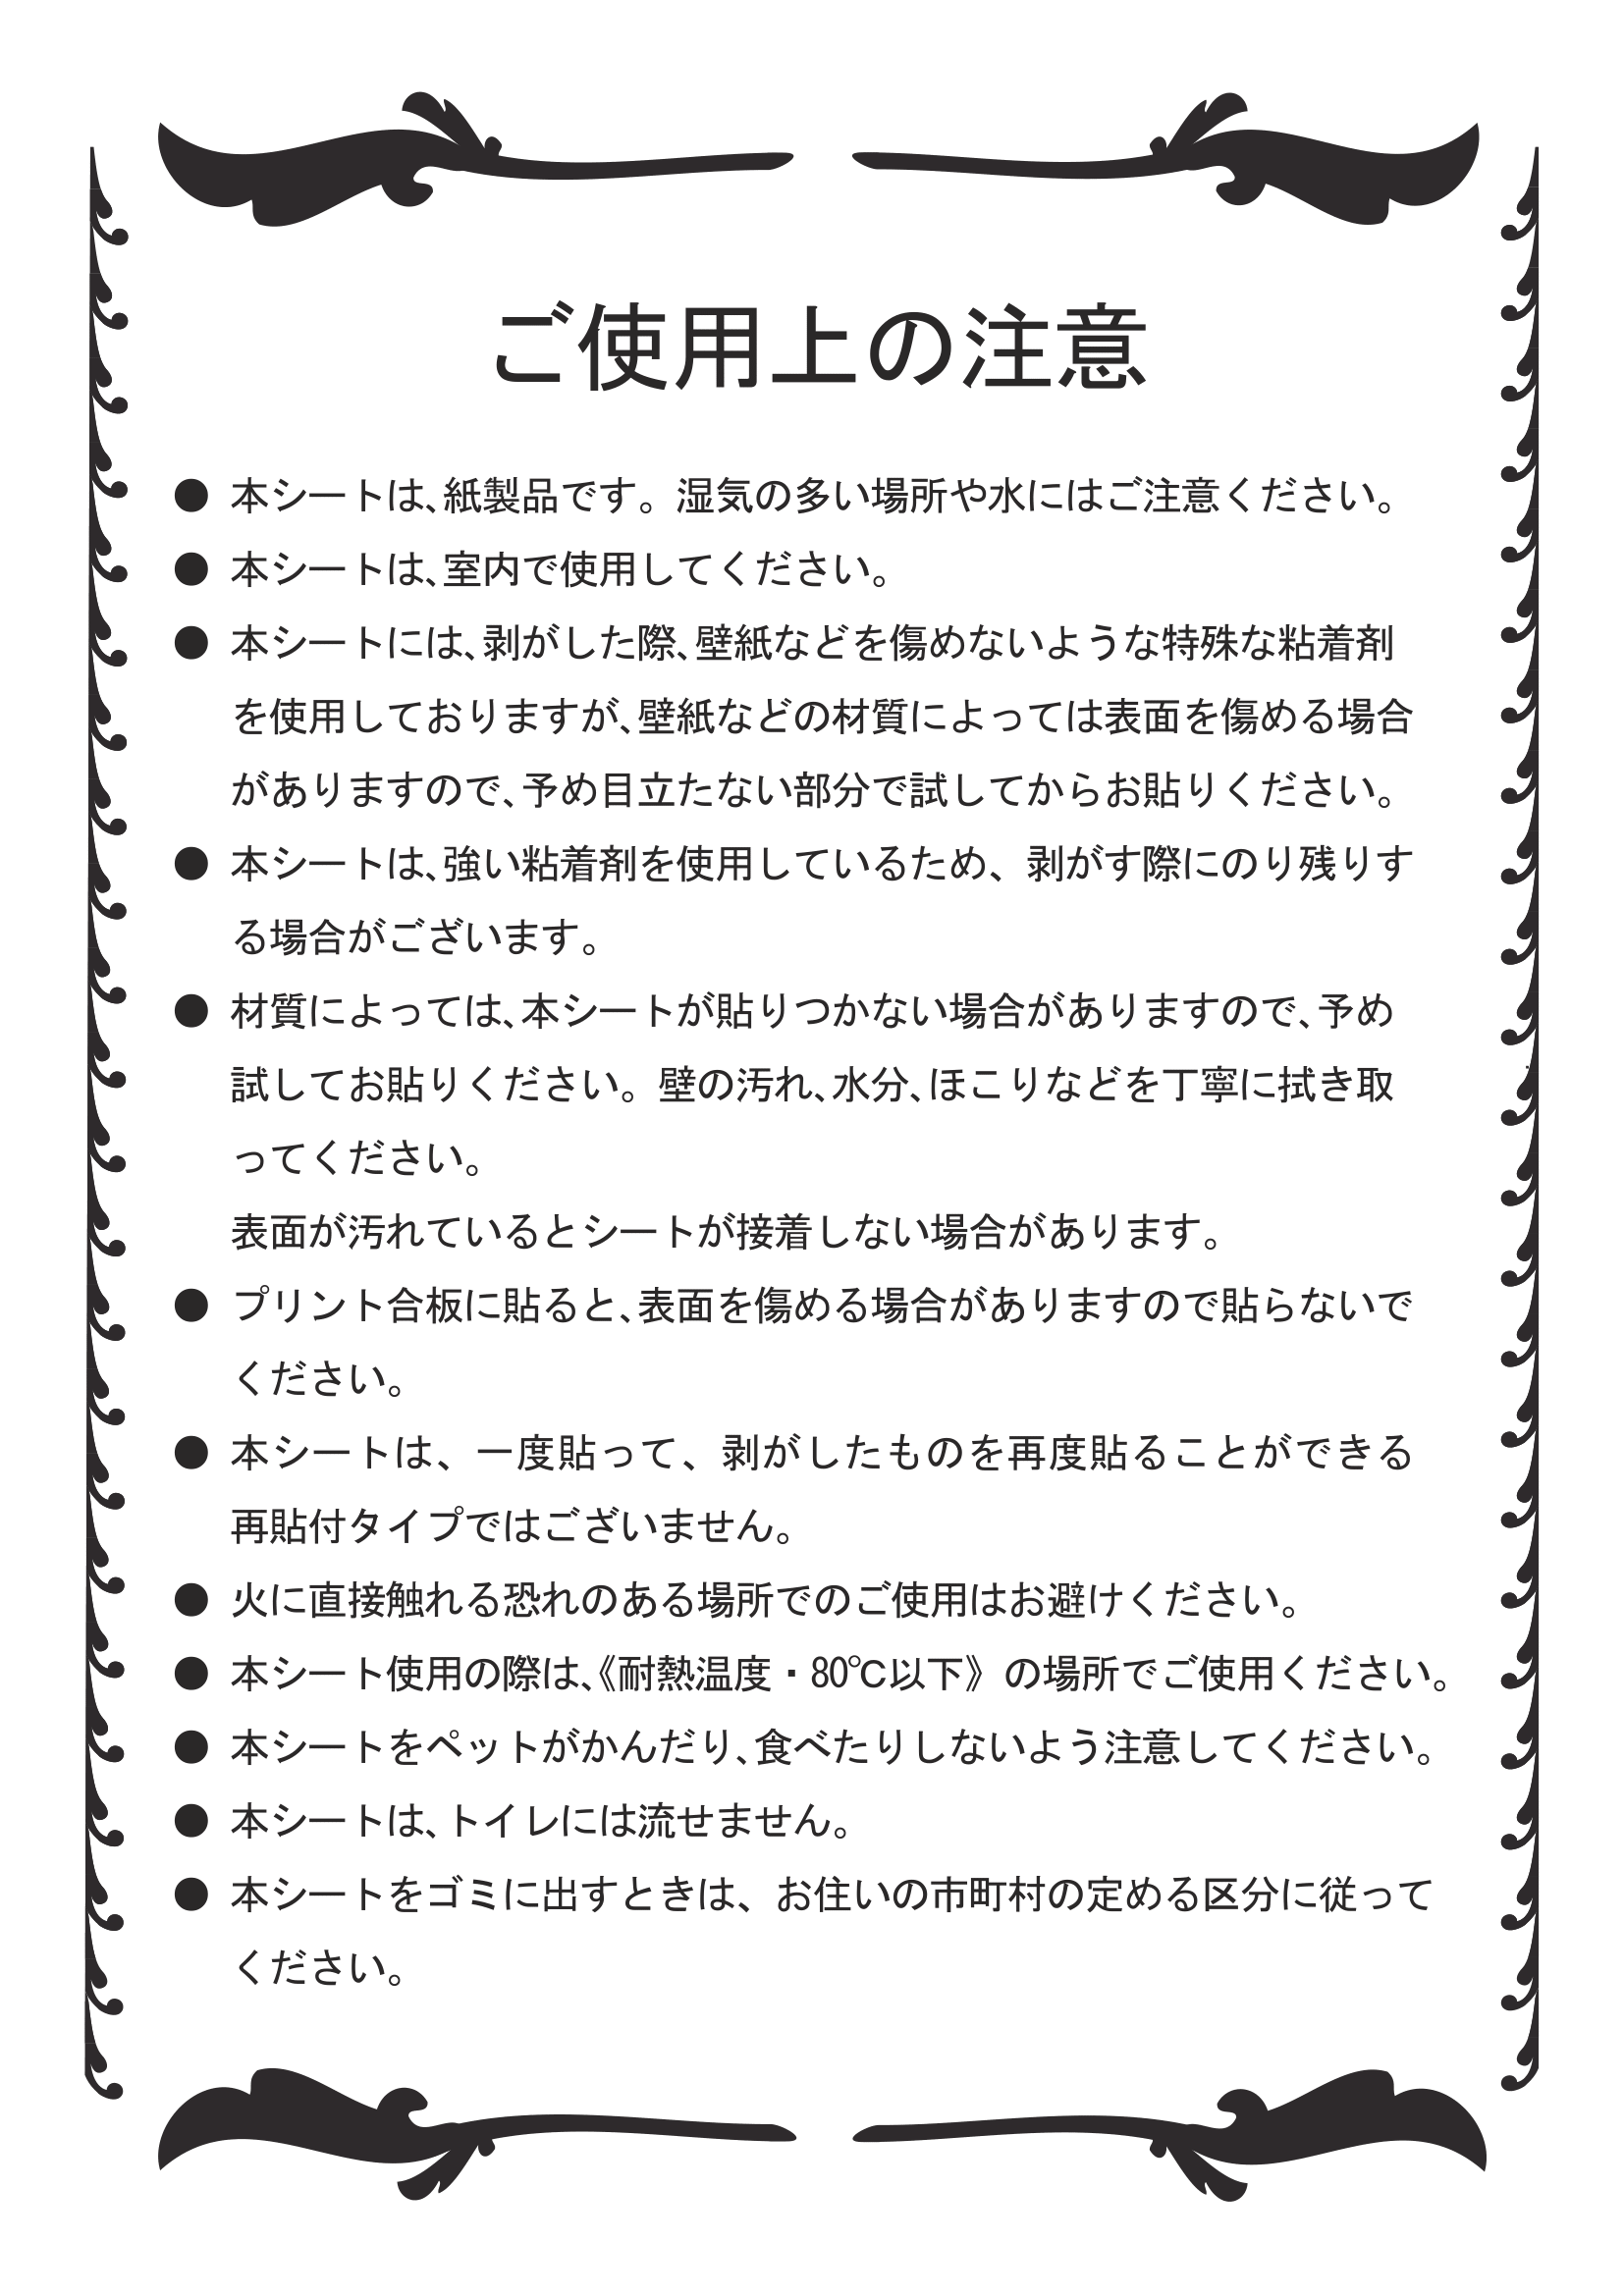 ご使用上の注意
● 本シートは、紙製品です。湿気の多い場所や水にはご注意ください。
● 本シートは、室内で使用してください。
● 本シートには、剥がした際、壁紙などを傷めないような特殊な粘着剤
を使用しておりますが、壁紙などの材質によっては表面を傷める場合
がありますので、予め目立たない部分で試してからお貼りください。
● 本シートは、強い粘着剤を使用しているため、剥がす際にのり残りす
る場合がございます。
● 材質によっては、本シートが貼りつかない場合がありますので、予め
試してお貼りください。壁の汚れ、水分、ほこりなどを丁寧に拭き取
ってください。
表面が汚れているとシートが接着しない場合があります。
● プリント合板に貼ると、表面を傷める場合がありますので貼らないで
ください。
● 本シートは、一度貼って、剥がしたものを再度貼ることができる
再貼付タイプではございません。
● 火に直接触れる恐れのある場所でのご使用はお避けください。
● 本シート使用の際は、《耐熱温度・80℃以下》の場所でご使用ください。
● 本シートをペットがかんだり、食べたりしないよう注意してください。
● 本シートは、トイレには流せません。
● 本シートをゴミに出すときは、お住いの市町村の定める区分に従って
ください。